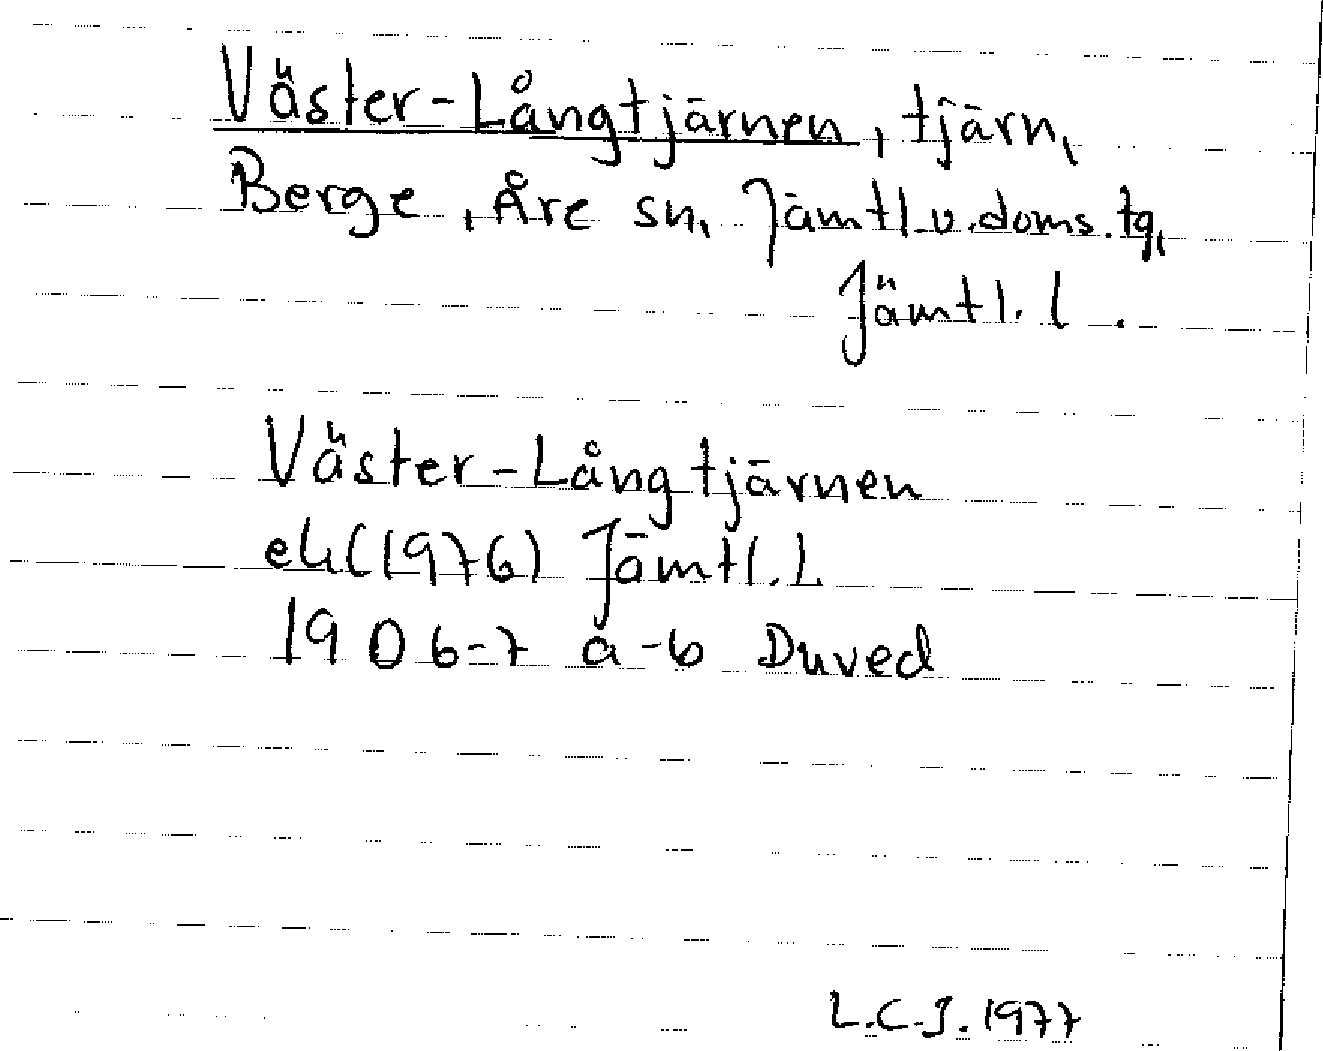 Väster-Långtjärnen, tjärn,
Berge, Åre sn, Jämtl.v.doms.tg,
Jämtl. l.
Väster-Långtjärnen
ek (1976) Jämtl.l.
19 D 6-7 a-b Duved
L.C.J. 1977